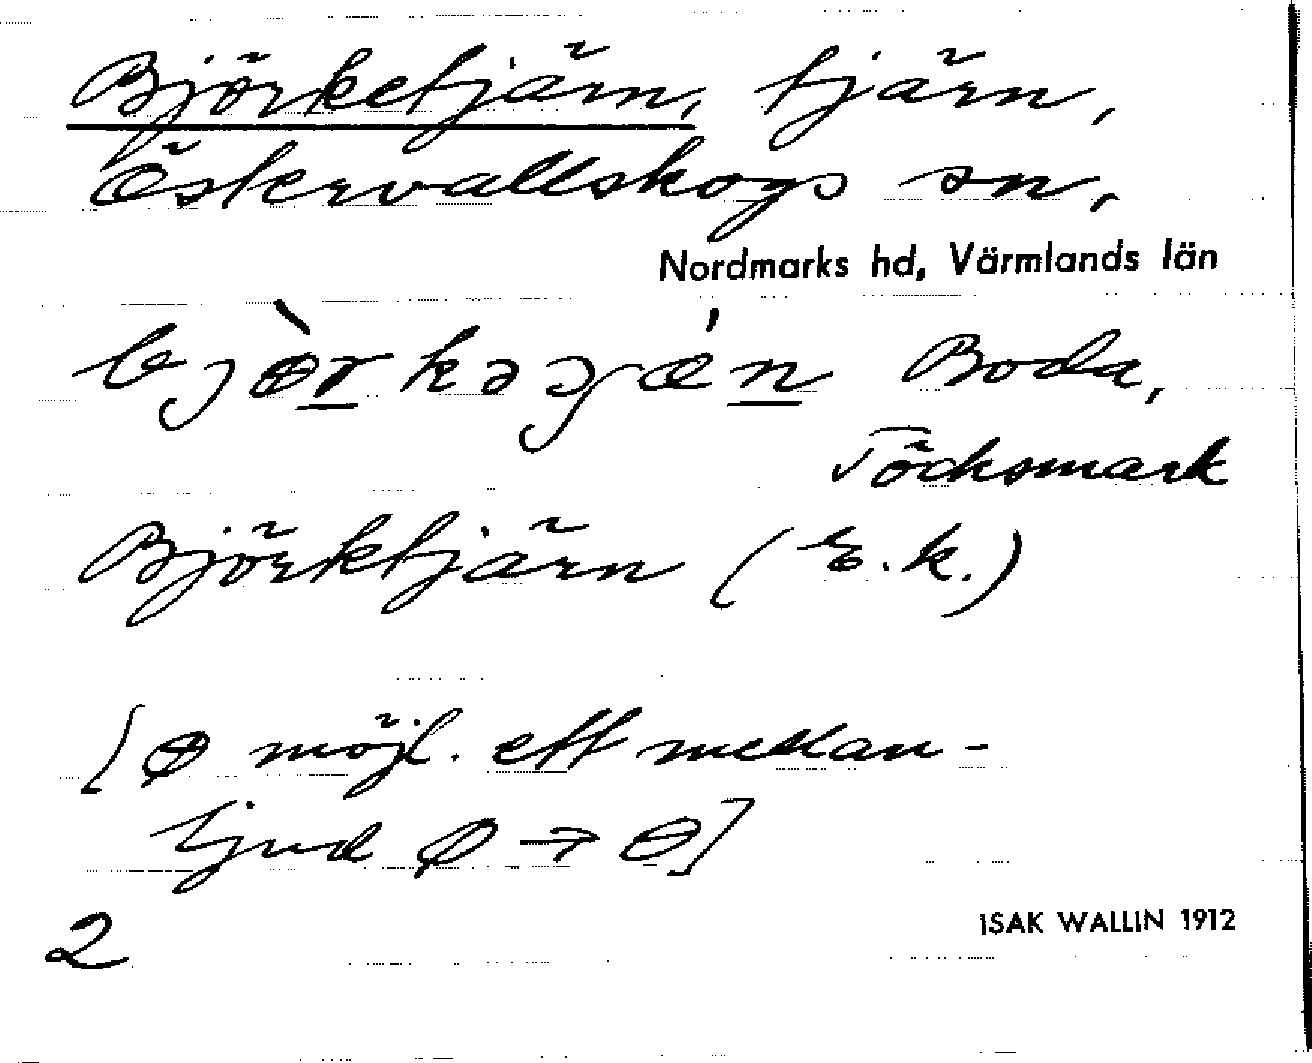 Björketjärn, tjärn,
Östervallskogs sn,
Nordmarks hd, Värmlands län
Boda,
Töcksmark
Björktjärn (E.k.)
möjl. ett mellan-
ljud ø → ɵ]
2
ISAK WALLIN 1912